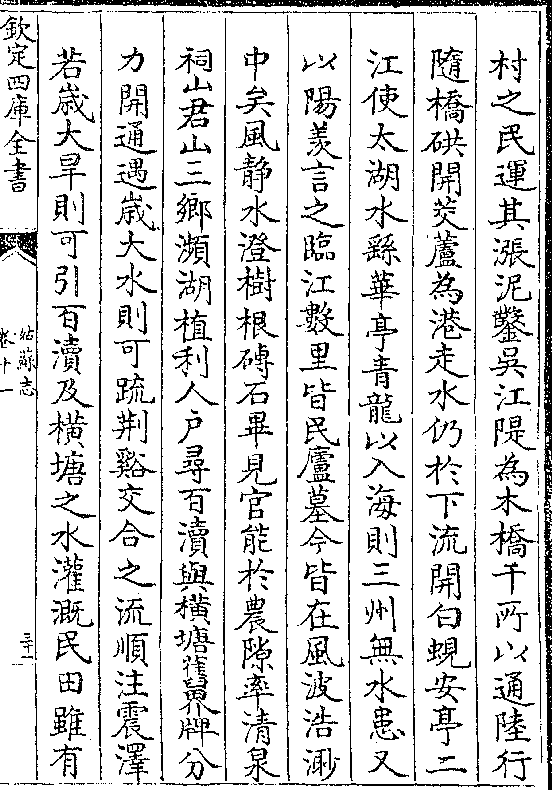 村之民運其漲泥鑿吳江隄為木橋千所以通陸行
隨橋硔開茭蘆為港走水仍於下流開白蜆安亭二
江使太湖水繇華亭青龍以入海則三州無水患又
以陽羨言之臨江數里皆民廬墓今皆在風波浩渺
中矣風静水澄樹根磚石畢見官能於農隙率清泉
祠山君山三鄉瀕湖植利人户尋百瀆與橫塘舊界牌分
力開通遇歳大水則可疏荆谿交合之流順注震澤
若歳大旱則可引百瀆及橫塘之水灌溉民田雖有
欽定四庫全書
姑蘇志
卷十一